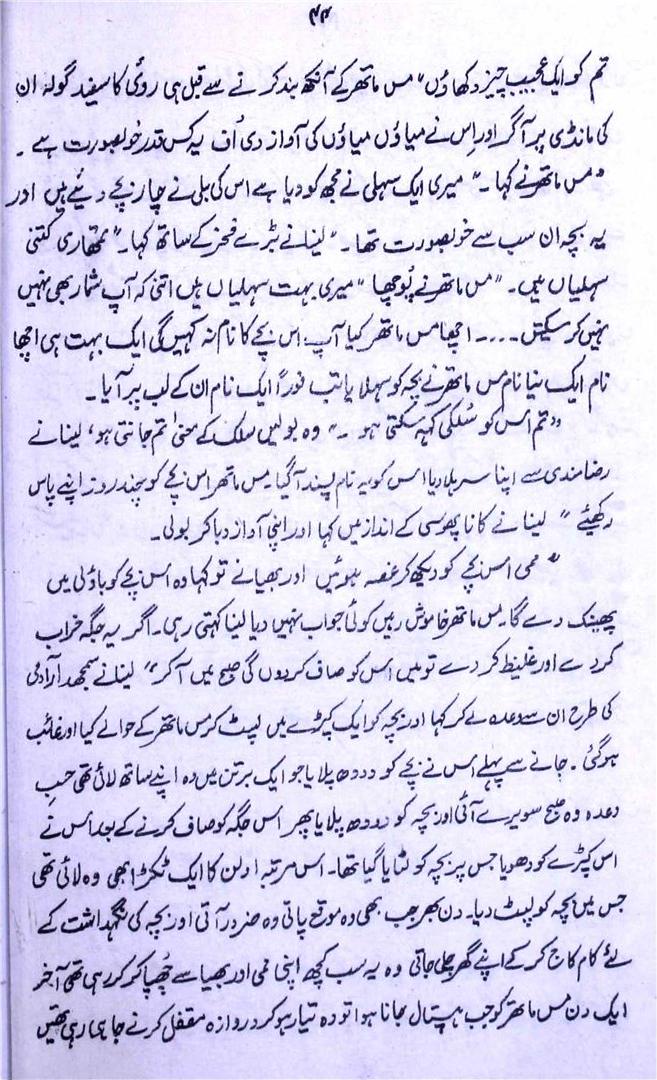 ۴۴
تم کو ایک عجیب چیز دکھاؤں" مس ماتھر کے آنکھ بند کرنے سے قبل ہی روئی کا سفید گولہ ان
کی مانڈی پر آگر اور اس نے میاؤں میاؤں کی آواز دی اُف یہ کس قدر خوبصورت ہے ۔
"مس ماتھر نے کہا ۔" میری ایک سہلی نے مجھ کو دیا ہے اس کی بلی نے چار بچے دیئے ہیں اور
یہ بچہ ان سب سے خوبصورت تھا ۔" لینا نے بڑے فخر کے ساتھ کہا ۔" تمھاری کتنی
سہلیاں ہیں ۔" مس ماتھر نے پُوچھا "میری بہت سہلیاں ہیں اتنی کہ آپ شمار بھی نہیں
نہیں کر سکیتں ۔۔۔۔ اچھا مس ماتھر کیا آپ اس بچے کا نام نہ کہیں گی ایک بہت ہی اچھا
نام ایک نیا نام مس ماتھر نے بچہ کو سہلایا تب فوراً ایک نام ان کے لب پر آیا ۔
"تم اس کو سُلکی کہہ سکتی ہو ۔" وہ بولیں سلک کے معنیٰ تم جانتی ہو، لینا نے
رضامندی سے اپنا سر ہلا دیا اس کو یہ نام پسند آگیا ۔ مس ماتھر اس بچے کو چند روز اپنے پاس
رکھیئے " لینا نے کانا پھوسی کے انداز میں کہا اور اپنی آواز دبا کر بولی ۔
"ممی اس بچے کو دیکھ کر غصہ ہوئیں اور بھیا نے تو کہا وہ اس بچے کو باؤلی میں
پھینک دے گا ۔ مس ماتھر خاموش رہیں کوئی جواب نہیں دیا لینا کہتی رہی ۔ اگر یہ جگہ خراب
کر دے اور غلیظ کر دے تو میں اس کو صاف کردوں گی صبح میں آکر" لینا نے سمجھدار آدمی
کی طرح ان سے وعدہ لے کر کہا اور بچہ کو ایک کپڑے میں لپیٹ کر مس ماتھر کے حوالے کیا اور غائب
ہوگئی ۔ جانے سے پہلے اس نے بچے کو دودھ پلایا جو ایک برتن میں وہ اپنے ساتھ لائی تھی حسبِ
وعدہ وہ صبح سویرے آئی اور بچہ کو دودھ پلایا پھر اس جگہ کو صاف کرنے کے بعد اس نے
اس کپڑے کو دھویا جس پر بچہ کو لٹایا گیا تھا ۔ اس مرتبہ اولن کا ایک ٹکڑا بھی وہ لائی تھی
جس میں بچہ کو لپیٹ دیا ۔ دن بھر جب بھی وہ موقع پاتی وہ ضرور آتی اور بچہ کی نگہداشت کے
لئے کام کاج کر کے اپنے گھر چلی جاتی وہ یہ سب کچھ اپنی ممی اور بھیا سے چُھپا کر کر رہی تھی آخر
ایک دن مس ماتھر کو جب ہسپتال جانا ہوا تو وہ تیار ہو کر دروازہ مقفل کرنے جا ہی رہی تھیں